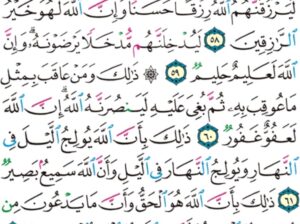 لَيَرْزُقَنَّهُمُ ٱللَّهُ رِزْقًا حَسَنًا وَإِنَّ ٱللَّهَ لَهُوَ خَيْرُ
ٱلرَّٰزِقِينَ ٥٨ لَيُدْخِلَنَّهُم مُّدْخَلًا يَرْضَوْنَهُۥ وَإِنَّ
ٱللَّهَ لَعَلِيمٌ حَلِيمٌ ٥٩ ۞ ذَٰلِكَ وَمَنْ عَاقَبَ بِمِثْلِ
مَا عُوقِبَ بِهِۦ ثُمَّ بُغِىَ عَلَيْهِ لَيَنصُرَنَّهُ ٱللَّهُ إِنَّ ٱللَّهَ
لَعَفُوٌّ غَفُورٌ ٦٠ ذَٰلِكَ بِأَنَّ ٱللَّهَ يُولِجُ ٱلَّيْلَ فِى
ٱلنَّهَارِ وَيُولِجُ ٱلنَّهَارَ فِى ٱلَّيْلِ وَأَنَّ ٱللَّهَ سَمِيعٌۢ بَصِيرٌ
٦١ ذَٰلِكَ بِأَنَّ ٱللَّهَ هُوَ ٱلْحَقُّ وَأَنَّ مَا يَدْعُونَ مِن